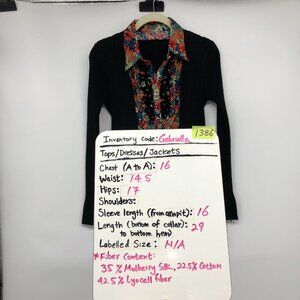 1386
Inventory Code: Gabriella
Tops/Dresses/Jackets
Chest (A to A): 16
Waist: 14.5
Hips: 17
Shoulders:
Sleeve length (from armpit): 16
Length (bottom of collar: 29
to bottom hem)
Labelled Size: N/A
*Fiber Content:
35% Mulberry Silk, 22.5% Cotton
42.5% Lyocell fiber